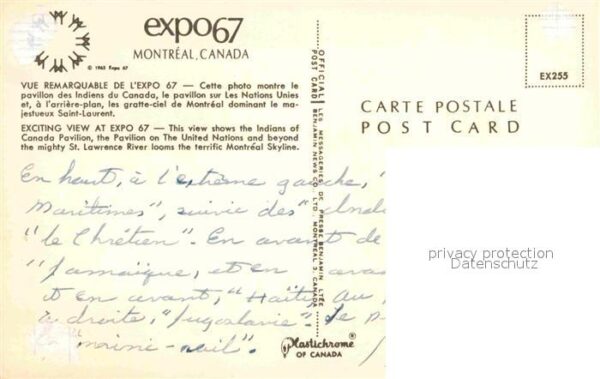 expo67
MONTRÉAL, CANADA
© 1963 Expo 67
VUE REMARQUABLE DE L'EXPO 67 — Cette photo montre le
pavillon des Indiens du Canada, le pavillon sur Les Nations Unies
et, à l'arrière-plan, les gratte-ciel de Montréal dominant le ma-
jestueux Saint-Laurent.
EXCITING VIEW AT EXPO 67 — This view shows the Indians of
Canada Pavilion, the Pavilion on The United Nations and beyond
the mighty St. Lawrence River looms the terrific Montréal Skyline.
En haut, à l'extrême gauche, "
Maritimes", suivie des "
"le Chrétien". En avant de
"Jamaïque, et en avan
et en avant, "Haïti, au
à droite, "Jugoslavie". Le p
"
Plastichrome®
OF CANADA
OFFICIAL POST CARD
LES MESSAGERIES DE PRESSE BENJAMIN LTÉE
BENJAMIN NEWS CO. LTD. MONTREAL 3, CANADA
EX255
CARTE POSTALE
POST CARD
privacy protection
Datenschutz